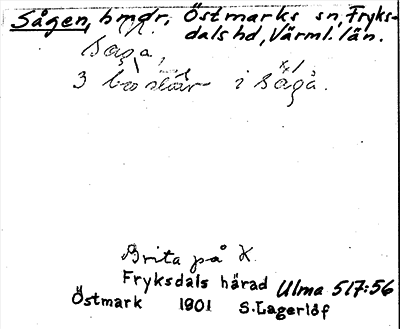 Sågen, hmdr. Östmarks sn, Fryks-
dals hd, Värml. län.
saga,
3 i sågå.
Brita på K
Fryksdals härad Ulma 517:56
Östmark 1901 S. Lagerlöf